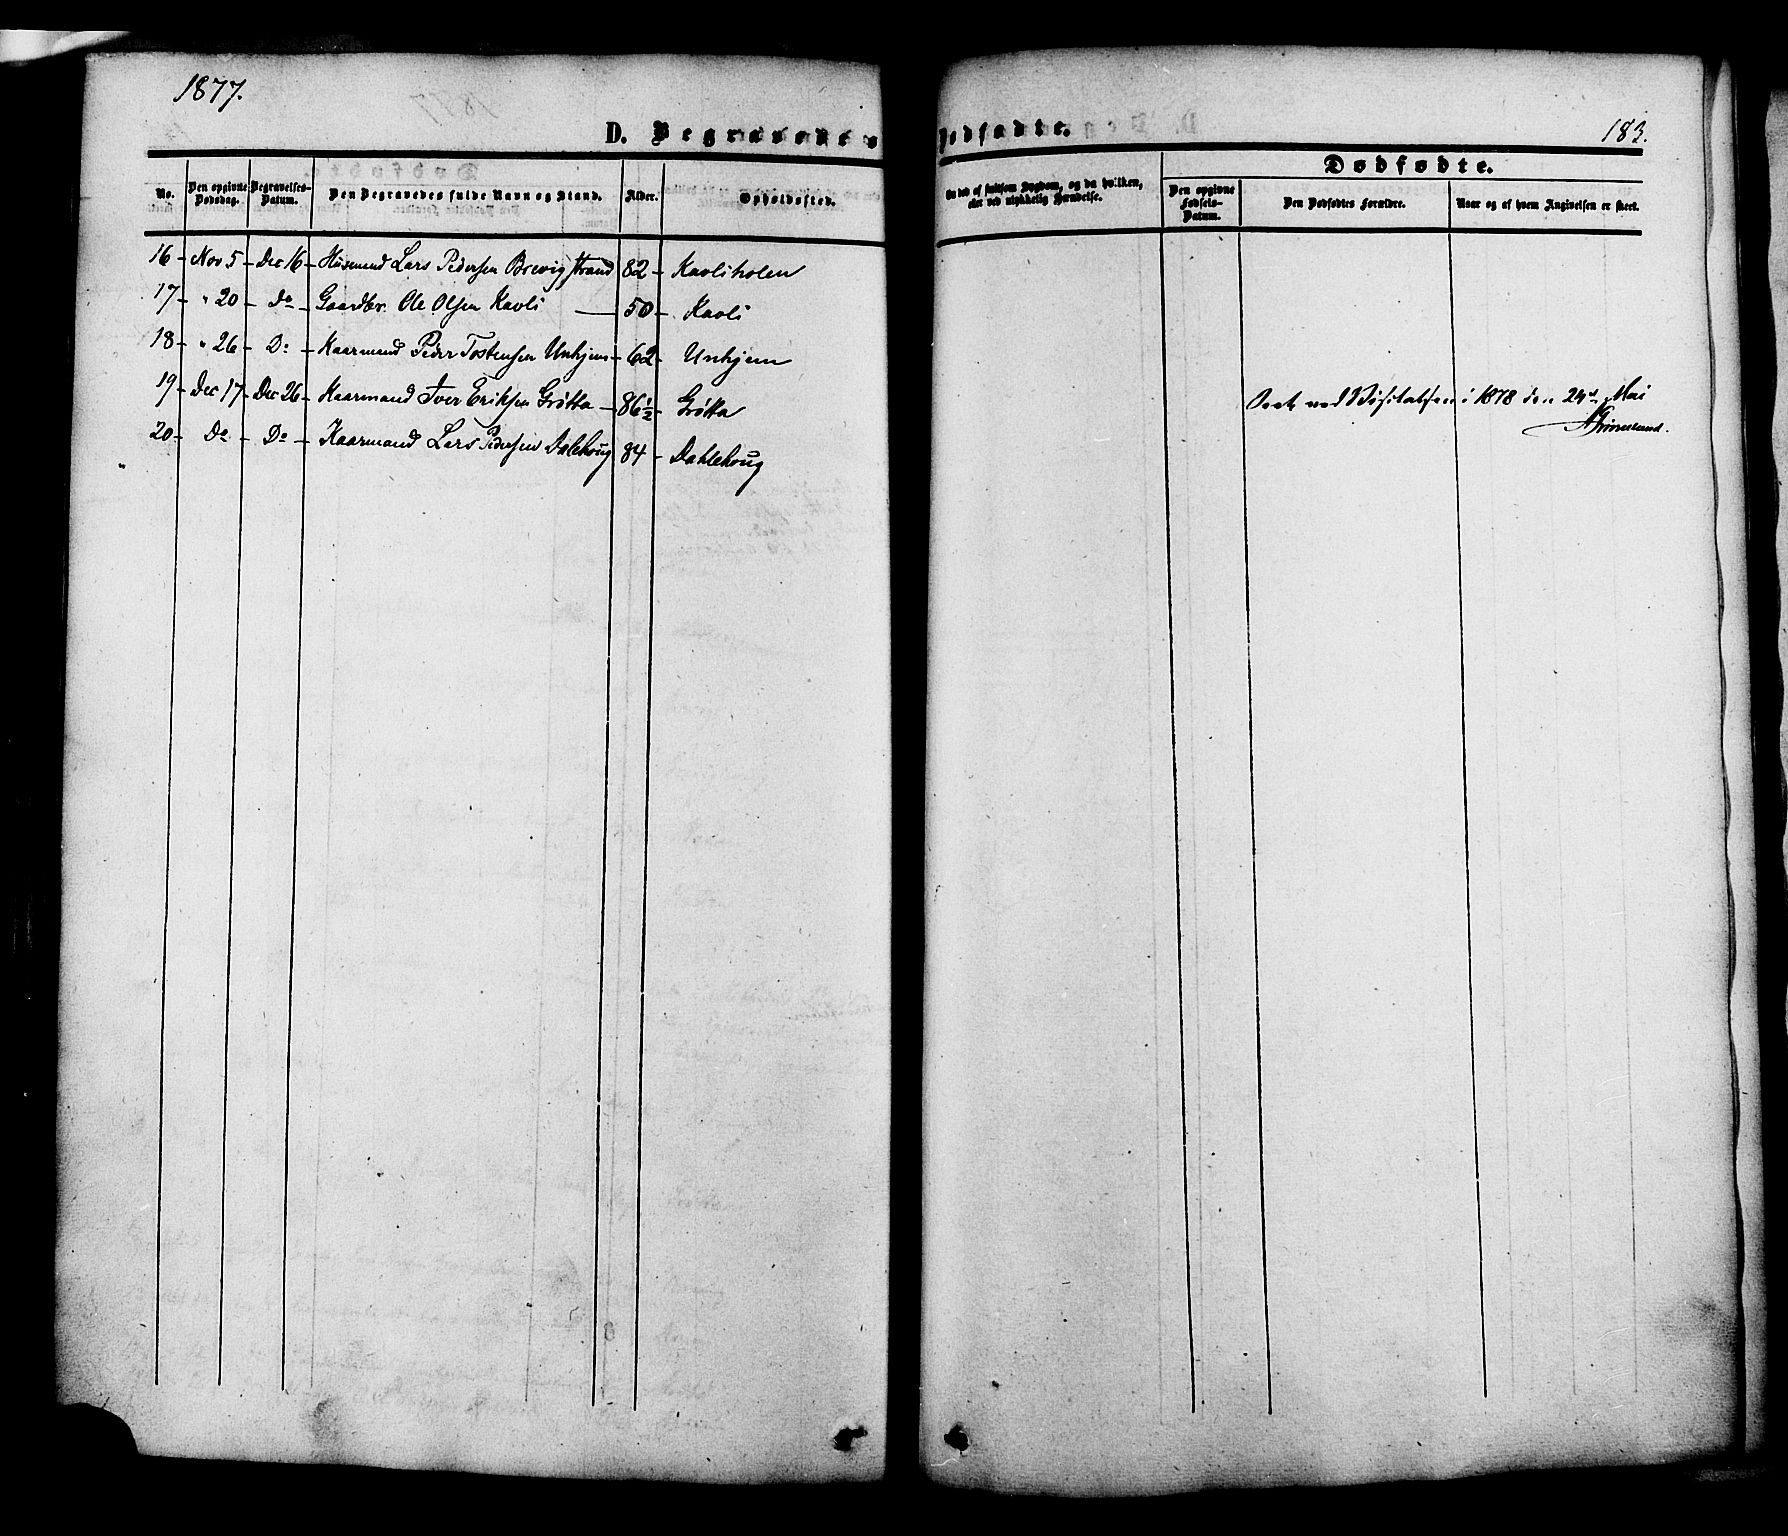 1877.
183.
D. Begravede o
Dødfødte.
Dødfødte.
No.
Den opgivne Dødsdag.
Begravelses-Datum.
Den Begravedes fulde Navn og Stand.
Alder.
Opholdssted.
Om død af smitsom Sygdom, og da hvilken,
eller ved ulykkelig Hændelse.
Den opgivne Fødsels-Datum.
Den Dødfødtes Forældre.
Naar og af hvem Angivelsen er skeet.
16 Nov 5 Dec 16 Husmand Lars Pedersen Brevig strand 82 Kavliholen
17 " 20 Do Gaardbr. Ole Olsen Kavli 50 Kavli
18 " 26 Do Kaarmand Peder Tostensen Unhjem 62 Unhjem
19 Dec 17 Dec 26 Kaarmand Iver Eriksen Grøtta 86½ Grøtta
20 Do Do Kaarmand Lars Pedersen Dalehoug 84 Dahlehoug
Seet ved Visitatsen i 1878 den 24de Mai
Grimelund.